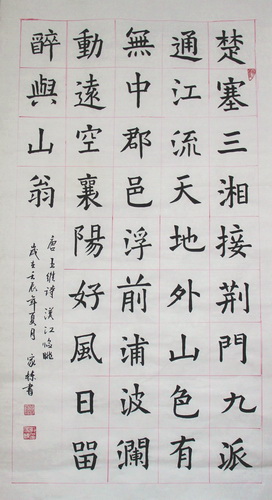 楚塞三湘接荆門九派
通江流天地外山色有
無中郡邑浮前浦波瀾
動遠空襄陽好風日留
醉與山翁
唐王維詩漢江臨眺
歲在壬辰年夏月 家栋書